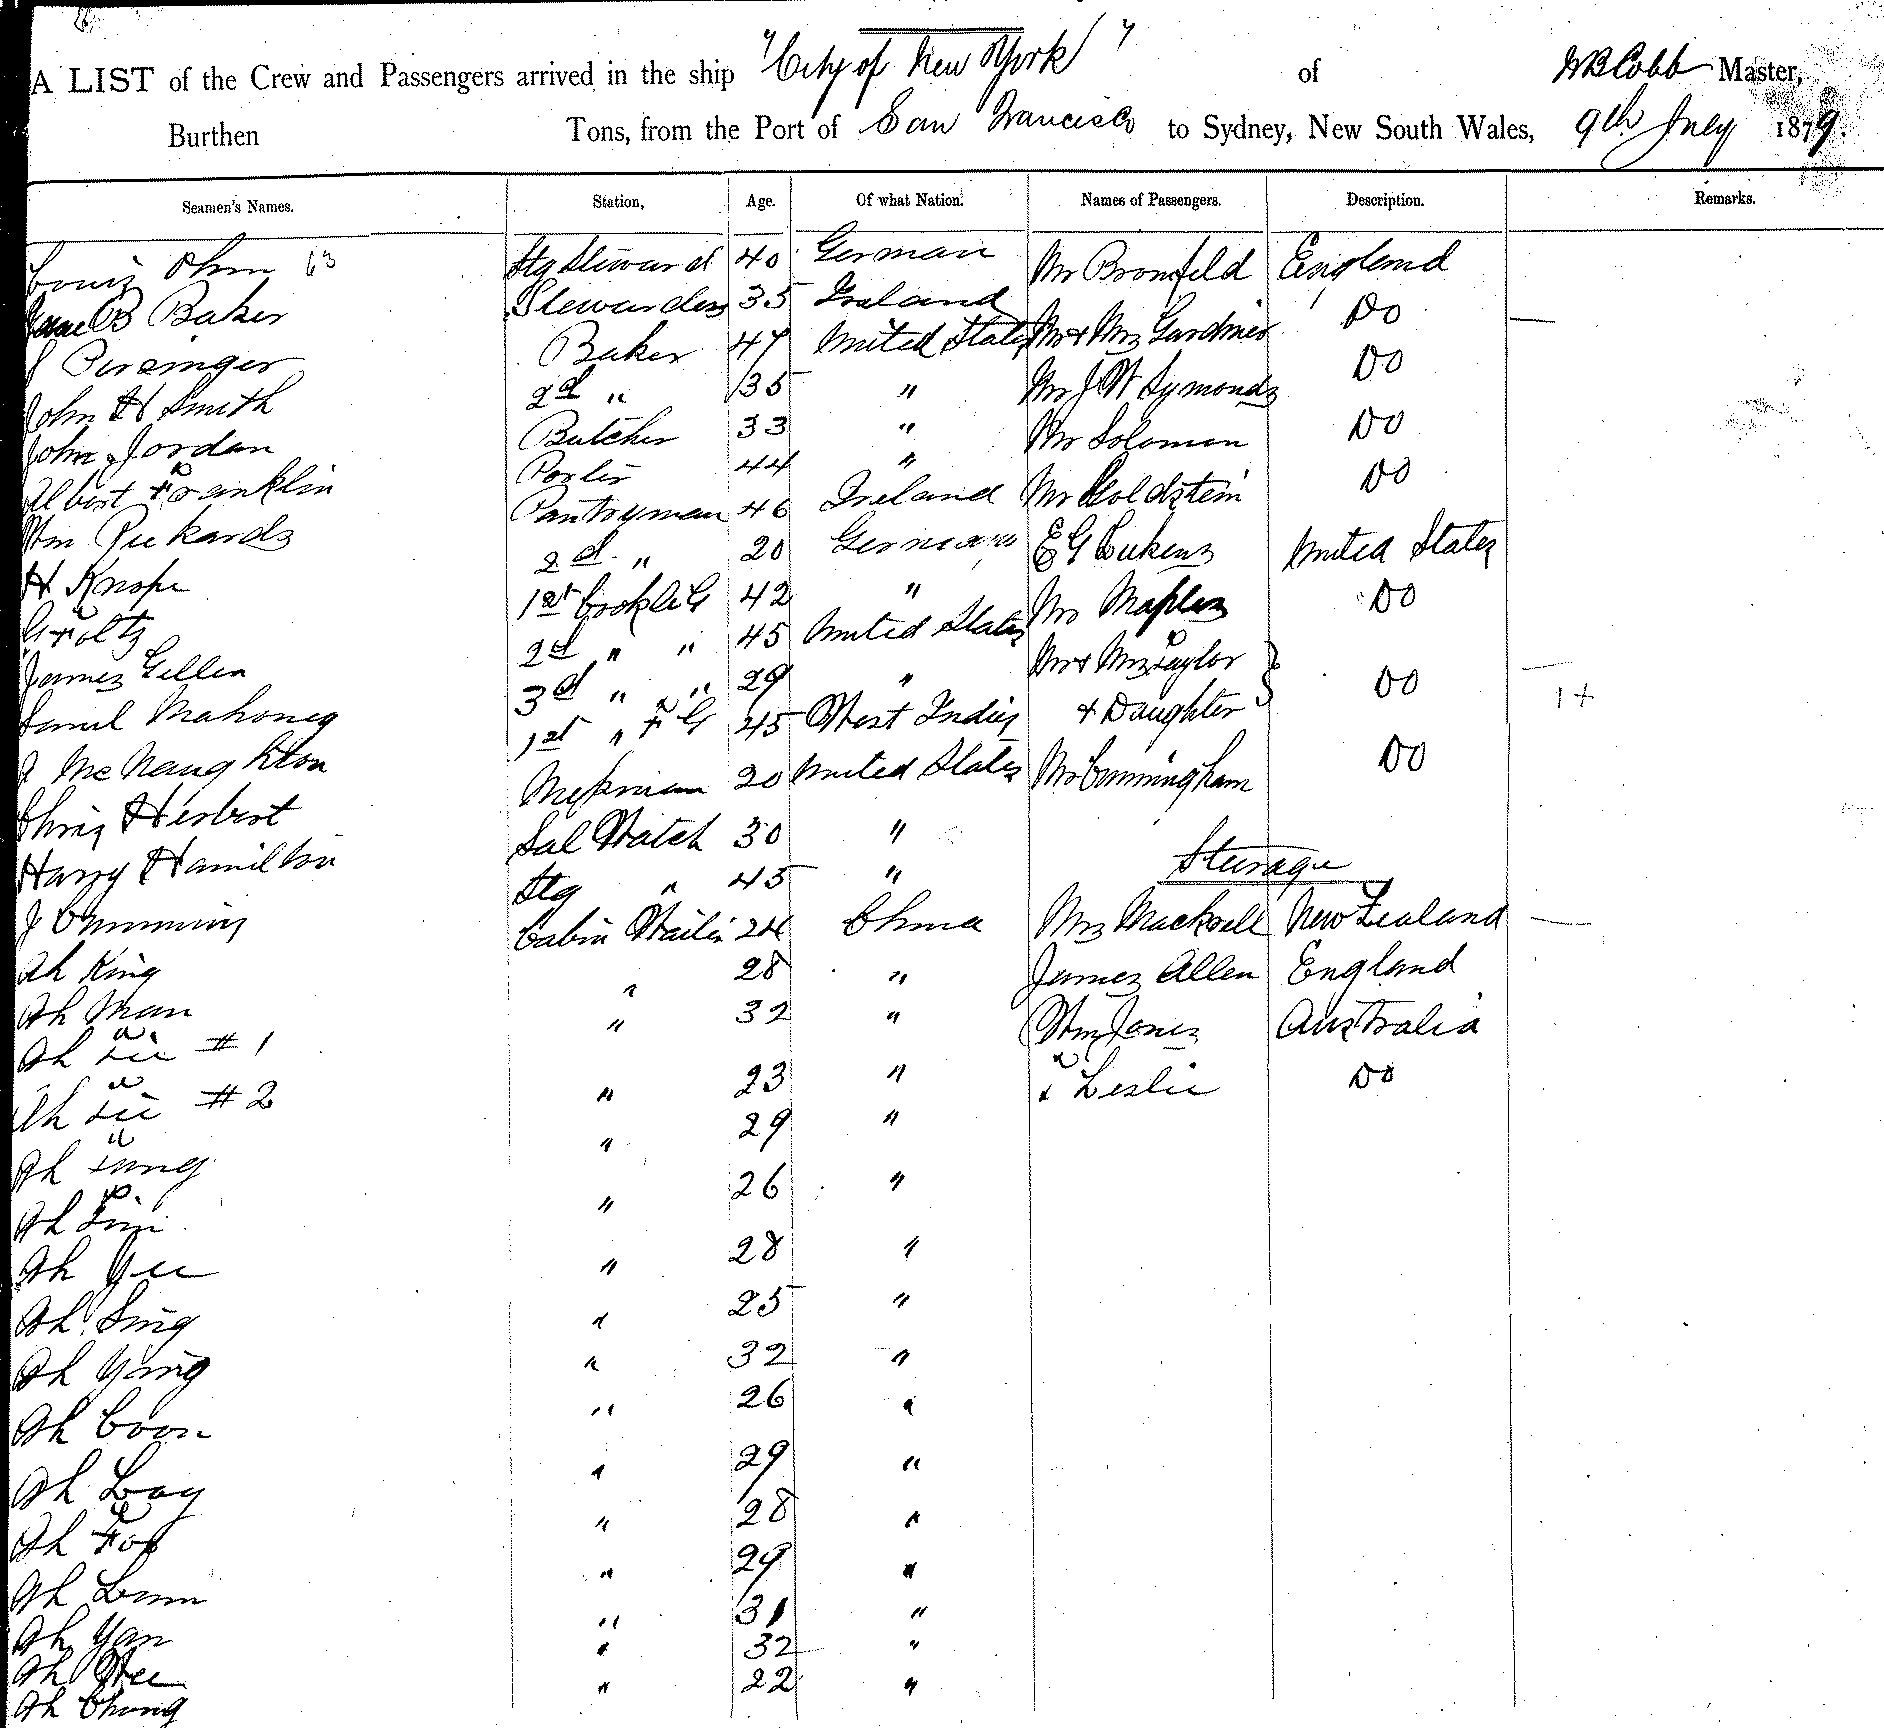 A LIST of the Crew and Passengers arrived in the ship "City of New York" of W B Cobb Master,
Burthen Tons, from the Port of San Francisco to Sydney, New South Wales, 9th July 1879.
Seamen's Names. Station, Age. Of what Nation. Names of Passengers. Description. Remarks.
Louis Ohm 63 Stg Steward 40 German Mr Bromfeld England
B Baker Stewardess 35 Ireland Mr & Mrs Gardiner Do
J Persinger Baker 47 United States Mr J W Symonds Do
John H Smith 2d " 35 " Mr Solomon Do
John Jordan Butcher 33 " Mr Goldstein Do
Albert Franklin Porter 44 " E G Lukens United States
Wm Rickards Pantryman 46 Ireland Mr Maples Do
H Knope 2d " 20 German Mr & Mrs Taylor
G Foltz 1st Cook 42 " & Daughter Do 1+
James Gillen 2d " " 45 United States Mr Cunningham Do
Saml Mahoney 3d " " 29 "
J McNaughton 1st " F G 45 West Indies
Chris Herbert Messman 20 United States
Harry Hamilton Sal Watch 30 " Steerage
J Cumming Stg " 45 " Mrs Mackrell New Zealand
Ah King Cabin Waiter 24 China James Allen England
Ah Man " 28 " Wm Jones Australia
Ah Lee #1 " 32 " L Leslie Do
Ah Lee #2 " 23 "
Ah Lung " 29 "
Ah Lim " 26 "
Ah Yee " 28 "
Ah Sing " 25 "
Ah Young " 32 "
Ah Coon " 26 "
Ah Bay " 29 "
Ah Foo " 28 "
Ah Bum " 29 "
Ah Yan " 31 "
Ah Hee " 32 "
Ah Chung " 22 "